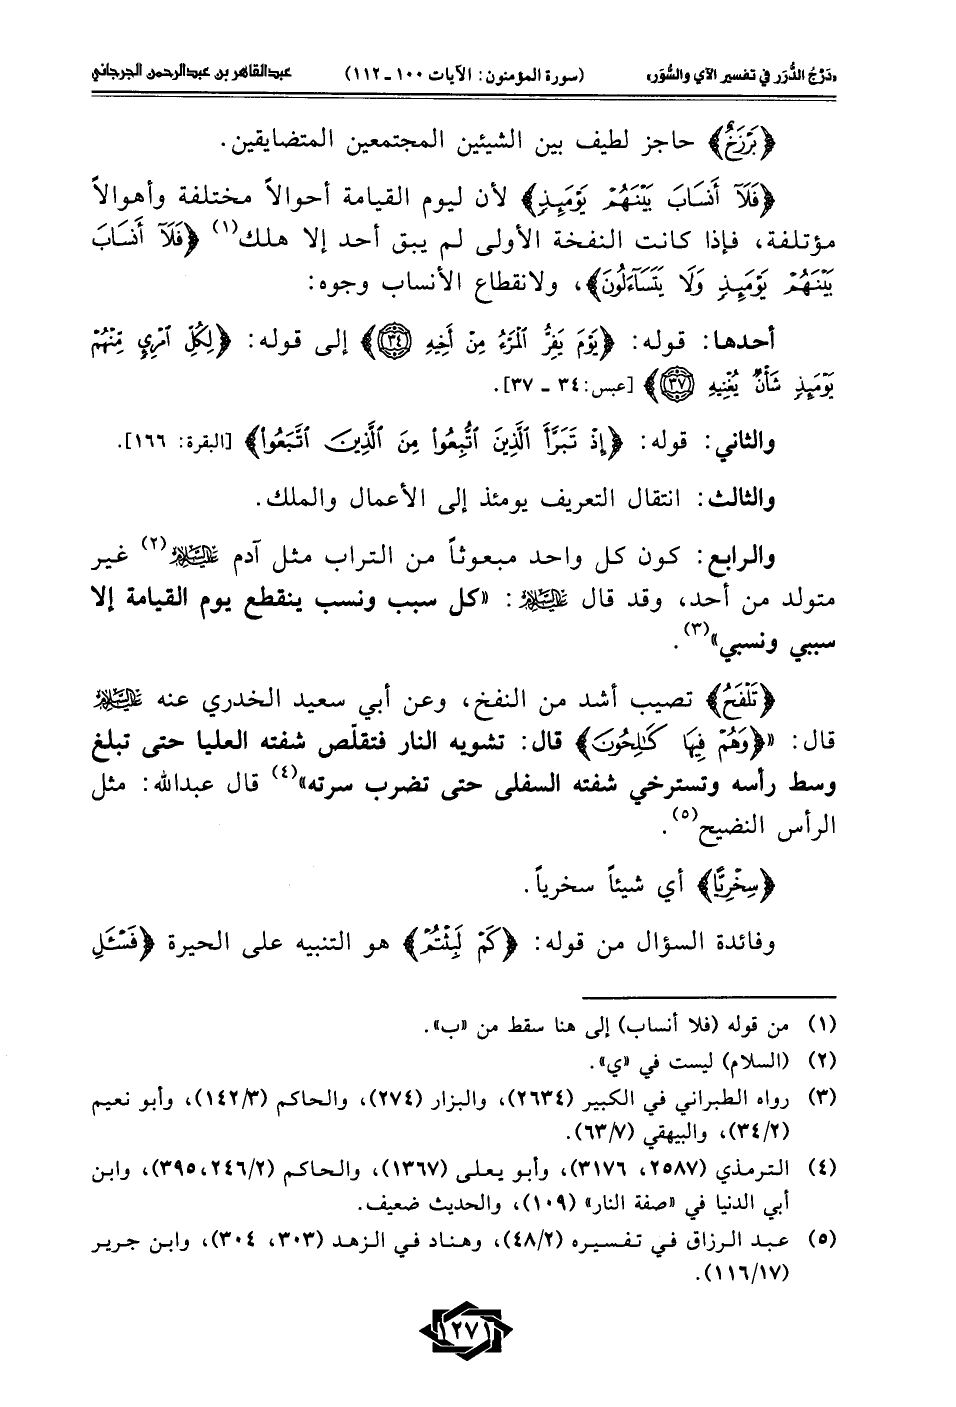 «دَرْجُ الدُّرَر في تفسير الآي والسُّوَر» (سورة المؤمنون: الآيات ١٠٠ ـ ١١٢) عبدالقاهر بن عبدالرحمن الجرجاني
﴿بَرْزَخٌ﴾ حاجز لطيف بين الشيئين المجتمعين المتضايقين.
﴿فَلَآ أَنسَابَ بَيْنَهُمْ يَوْمَئِذٍ﴾ لأن ليوم القيامة أحوالاً مختلفة وأهوالاً
مؤتلفة، فإذا كانت النفخة الأولى لم يبق أحد إلا هلك(١) ﴿فَلَآ أَنسَابَ
بَيْنَهُمْ يَوْمَئِذٍ وَلَا يَتَسَآءَلُونَ﴾، ولانقطاع الأنساب وجوه:
أحدها: قوله: ﴿يَوْمَ يَفِرُّ ٱلْمَرْءُ مِنْ أَخِيهِ ٣٤﴾ إلى قوله: ﴿لِكُلِّ ٱمْرِيٍٕ مِّنْهُمْ
يَوْمَئِذٍ شَأْنٌ يُغْنِيهِ ٣٧﴾ [عبس: ٣٤ ـ ٣٧].
والثاني: قوله: ﴿إِذْ تَبَرَّأَ ٱلَّذِينَ ٱتُّبِعُوا۟ مِنَ ٱلَّذِينَ ٱتَّبَعُوا۟﴾ [البقرة: ١٦٦].
والثالث: انتقال التعريف يومئذ إلى الأعمال والملك.
والرابع: كون كل واحد مبعوثاً من التراب مثل آدم عليه السلام(٢) غير
متولد من أحد، وقد قال عليه السلام: «كل سبب ونسب ينقطع يوم القيامة إلا
سببي ونسبي»(٣).
﴿تَلْفَحُ﴾ تصيب أشد من النفخ، وعن أبي سعيد الخدري عنه عليه السلام
قال: «﴿وَهُمْ فِيهَا كَٰلِحُونَ﴾ قال: تشويه النار فتقلّص شفته العليا حتى تبلغ
وسط رأسه وتسترخي شفته السفلى حتى تضرب سرته»(٤) قال عبدالله: مثل
الرأس النضيح(٥).
﴿سِخْرِيًّا﴾ أي شيئاً سخرياً.
وفائدة السؤال من قوله: ﴿كَمْ لَبِثْتُمْ﴾ هو التنبيه على الحيرة ﴿فَسْـَٔلِ
(١) من قوله (فلا أنساب) إلى هنا سقط من «ب».
(٢) (السلام) ليست في «ي».
(٣) رواه الطبراني في الكبير (٢٦٣٤)، والبزار (٢٧٤)، والحاكم (١٤٢/٣)، وأبو نعيم
(٣٤/٢)، والبيهقي (٦٣/٧).
(٤) الترمذي (٢٥٨٧، ٣١٧٦)، وأبو يعلى (١٣٦٧)، والحاكم (٢٤٦/٢، ٣٩٥)، وابن
أبي الدنيا في «صفة النار» (١٠٩)، والحديث ضعيف.
(٥) عبد الرزاق في تفسيره (٤٨/٢)، وهناد في الزهد (٣٠٣، ٣٠٤)، وابن جرير
(١١٦/١٧).
١٢٧١